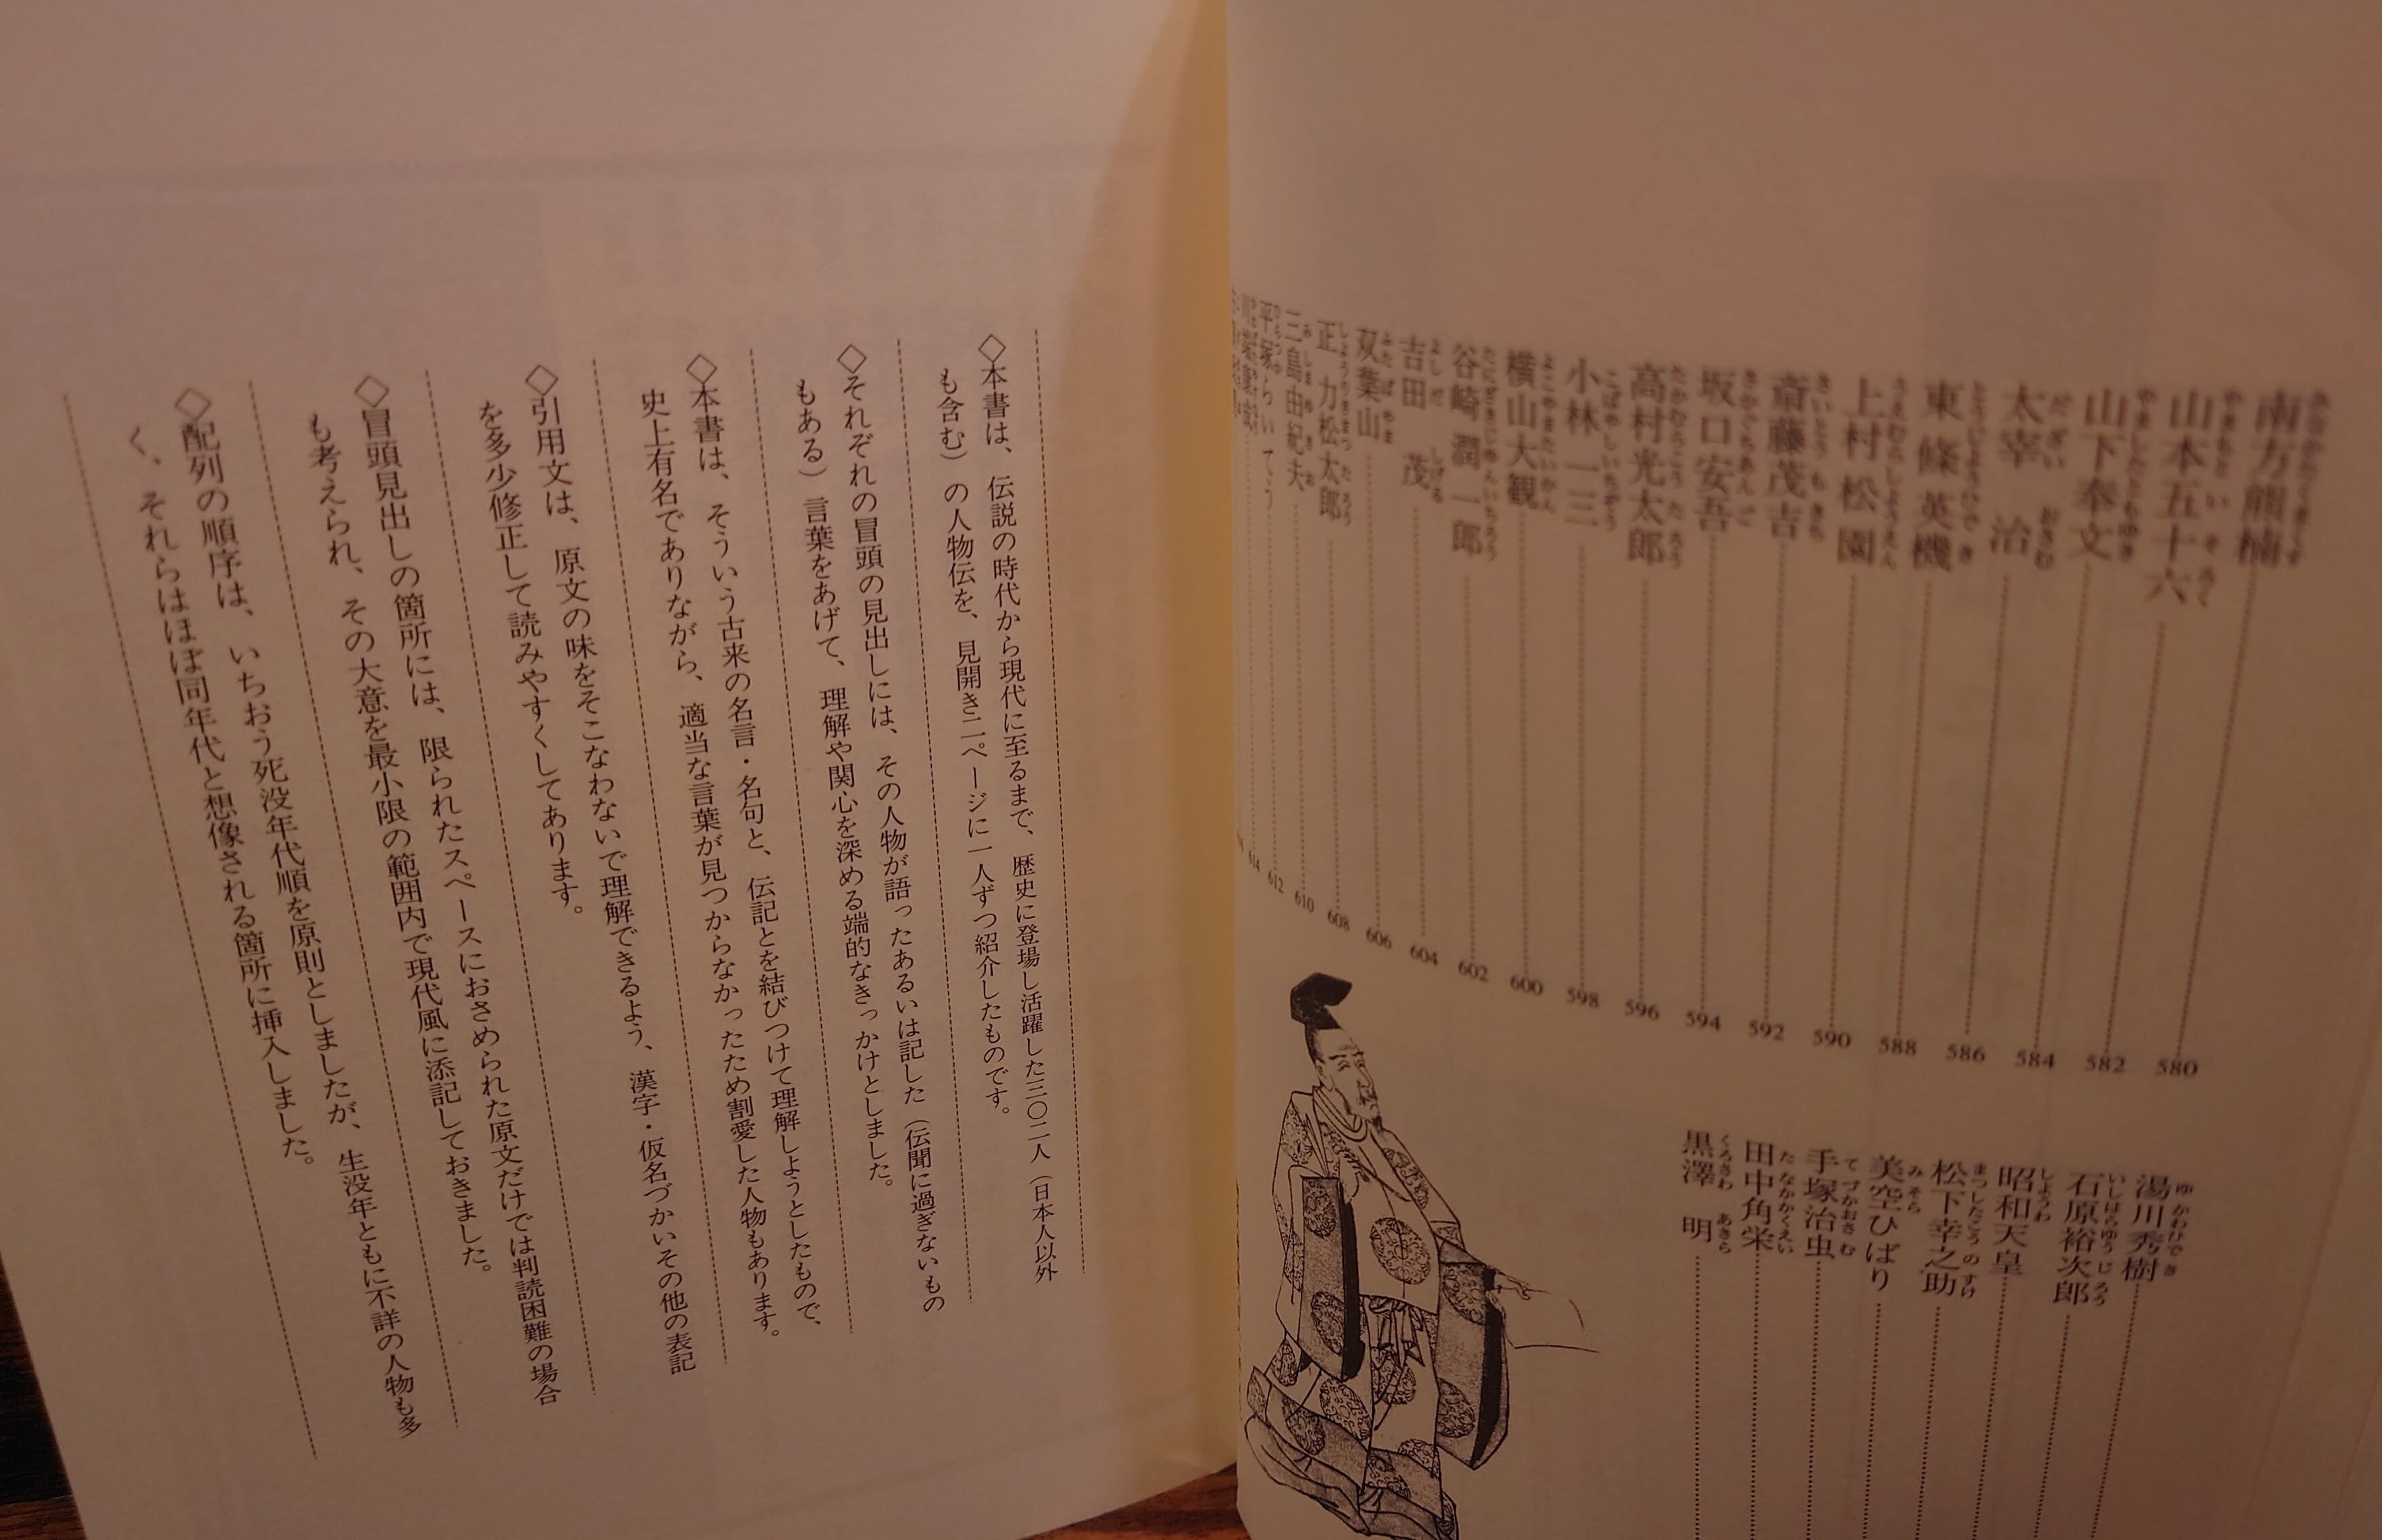 南方熊楠 580
山本五十六 582
山下奉文 584
太宰 治 586
東條英機 588
上村松園 590
斎藤茂吉 592
坂口安吾 594
高村光太郎 596
小林一三 598
横山大観 600
谷崎潤一郎 602
吉田 茂 604
双葉山 606
正力松太郎 608
三島由紀夫 610
平塚らいてう 612
614
湯川秀樹
石原裕次郎
昭和天皇
松下幸之助
美空ひばり
手塚治虫
田中角栄
黒澤 明
◇本書は、伝説の時代から現代に至るまで、歴史に登場し活躍した三〇二人（日本人以外
も含む）の人物伝を、見開き二ページに一人ずつ紹介したものです。
◇それぞれの冒頭の見出しには、その人物が語ったあるいは記した（伝聞に過ぎないもの
もある）言葉をあげて、理解や関心を深める端的なきっかけとしました。
◇本書は、そういう古来の名言・名句と、伝記とを結びつけて理解しようとしたもので、
史上有名でありながら、適当な言葉が見つからなかったため割愛した人物もあります。
◇引用文は、原文の味をそこなわないで理解できるよう、漢字・仮名づかいその他の表記
を多少修正して読みやすくしてあります。
◇冒頭見出しの箇所には、限られたスペースにおさめられた原文だけでは判読困難の場合
も考えられ、その大意を最小限の範囲内で現代風に添記しておきました。
◇配列の順序は、いちおう死没年代順を原則としましたが、生没年ともに不詳の人物も多
く、それらはほぼ同年代と想像される箇所に挿入しました。